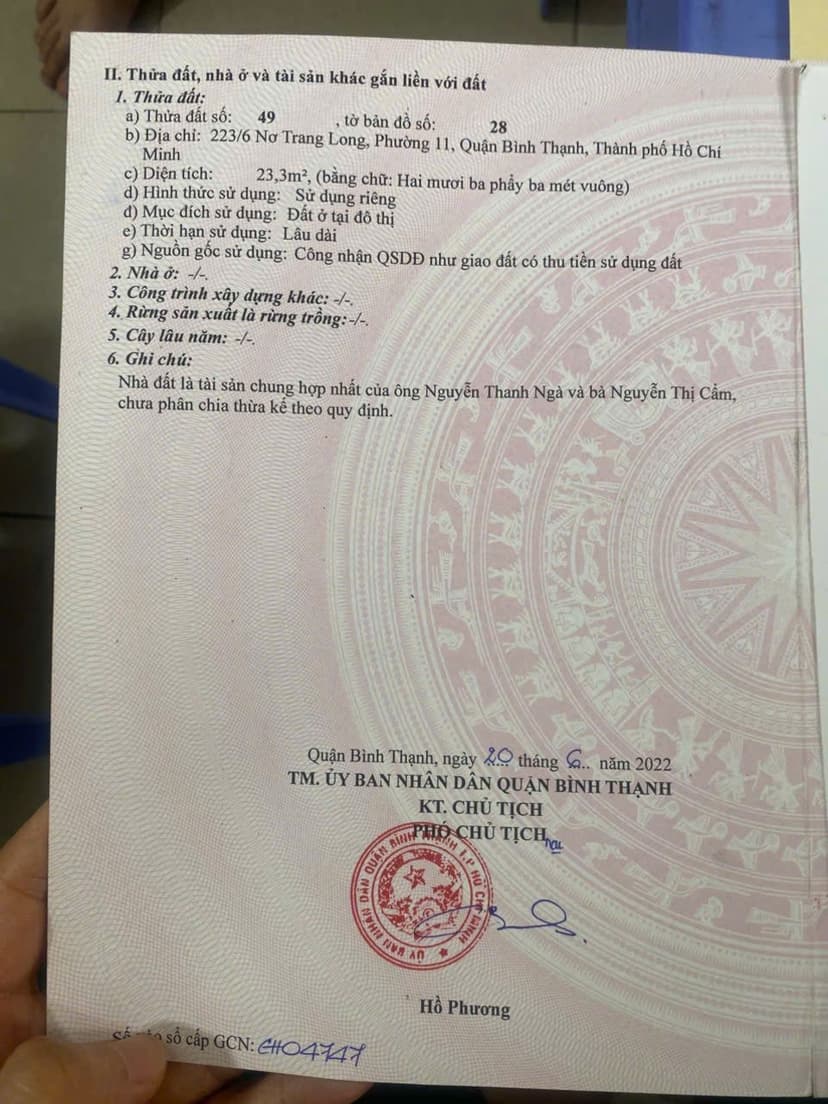 II. Thửa đất, nhà ở và tài sản khác gắn liền với đất
1. Thửa đất:
a) Thửa đất số: 49 , tờ bản đồ số: 28
b) Địa chỉ: 223/6 Nơ Trang Long, Phường 11, Quận Bình Thạnh, Thành phố Hồ Chí
Minh
c) Diện tích: 23,3m², (bằng chữ: Hai mươi ba phẩy ba mét vuông)
d) Hình thức sử dụng: Sử dụng riêng
đ) Mục đích sử dụng: Đất ở tại đô thị
e) Thời hạn sử dụng: Lâu dài
g) Nguồn gốc sử dụng: Công nhận QSDĐ như giao đất có thu tiền sử dụng đất
2. Nhà ở: -/-.
3. Công trình xây dựng khác: -/-.
4. Rừng sản xuất là rừng trồng: -/-.
5. Cây lâu năm: -/-.
6. Ghi chú:
Nhà đất là tài sản chung hợp nhất của ông Nguyễn Thanh Ngà và bà Nguyễn Thị Cẩm,
chưa phân chia thừa kế theo quy định.
Quận Bình Thạnh, ngày 20 tháng 6.. năm 2022
TM. ỦY BAN NHÂN DÂN QUẬN BÌNH THẠNH
KT. CHỦ TỊCH
PHÓ CHỦ TỊCH
ỦY BAN NHÂN DÂN QUẬN BÌNH THẠNH T.P HỒ CHÍ MINH
Hồ Phương
Số sổ cấp GCN: CH04747